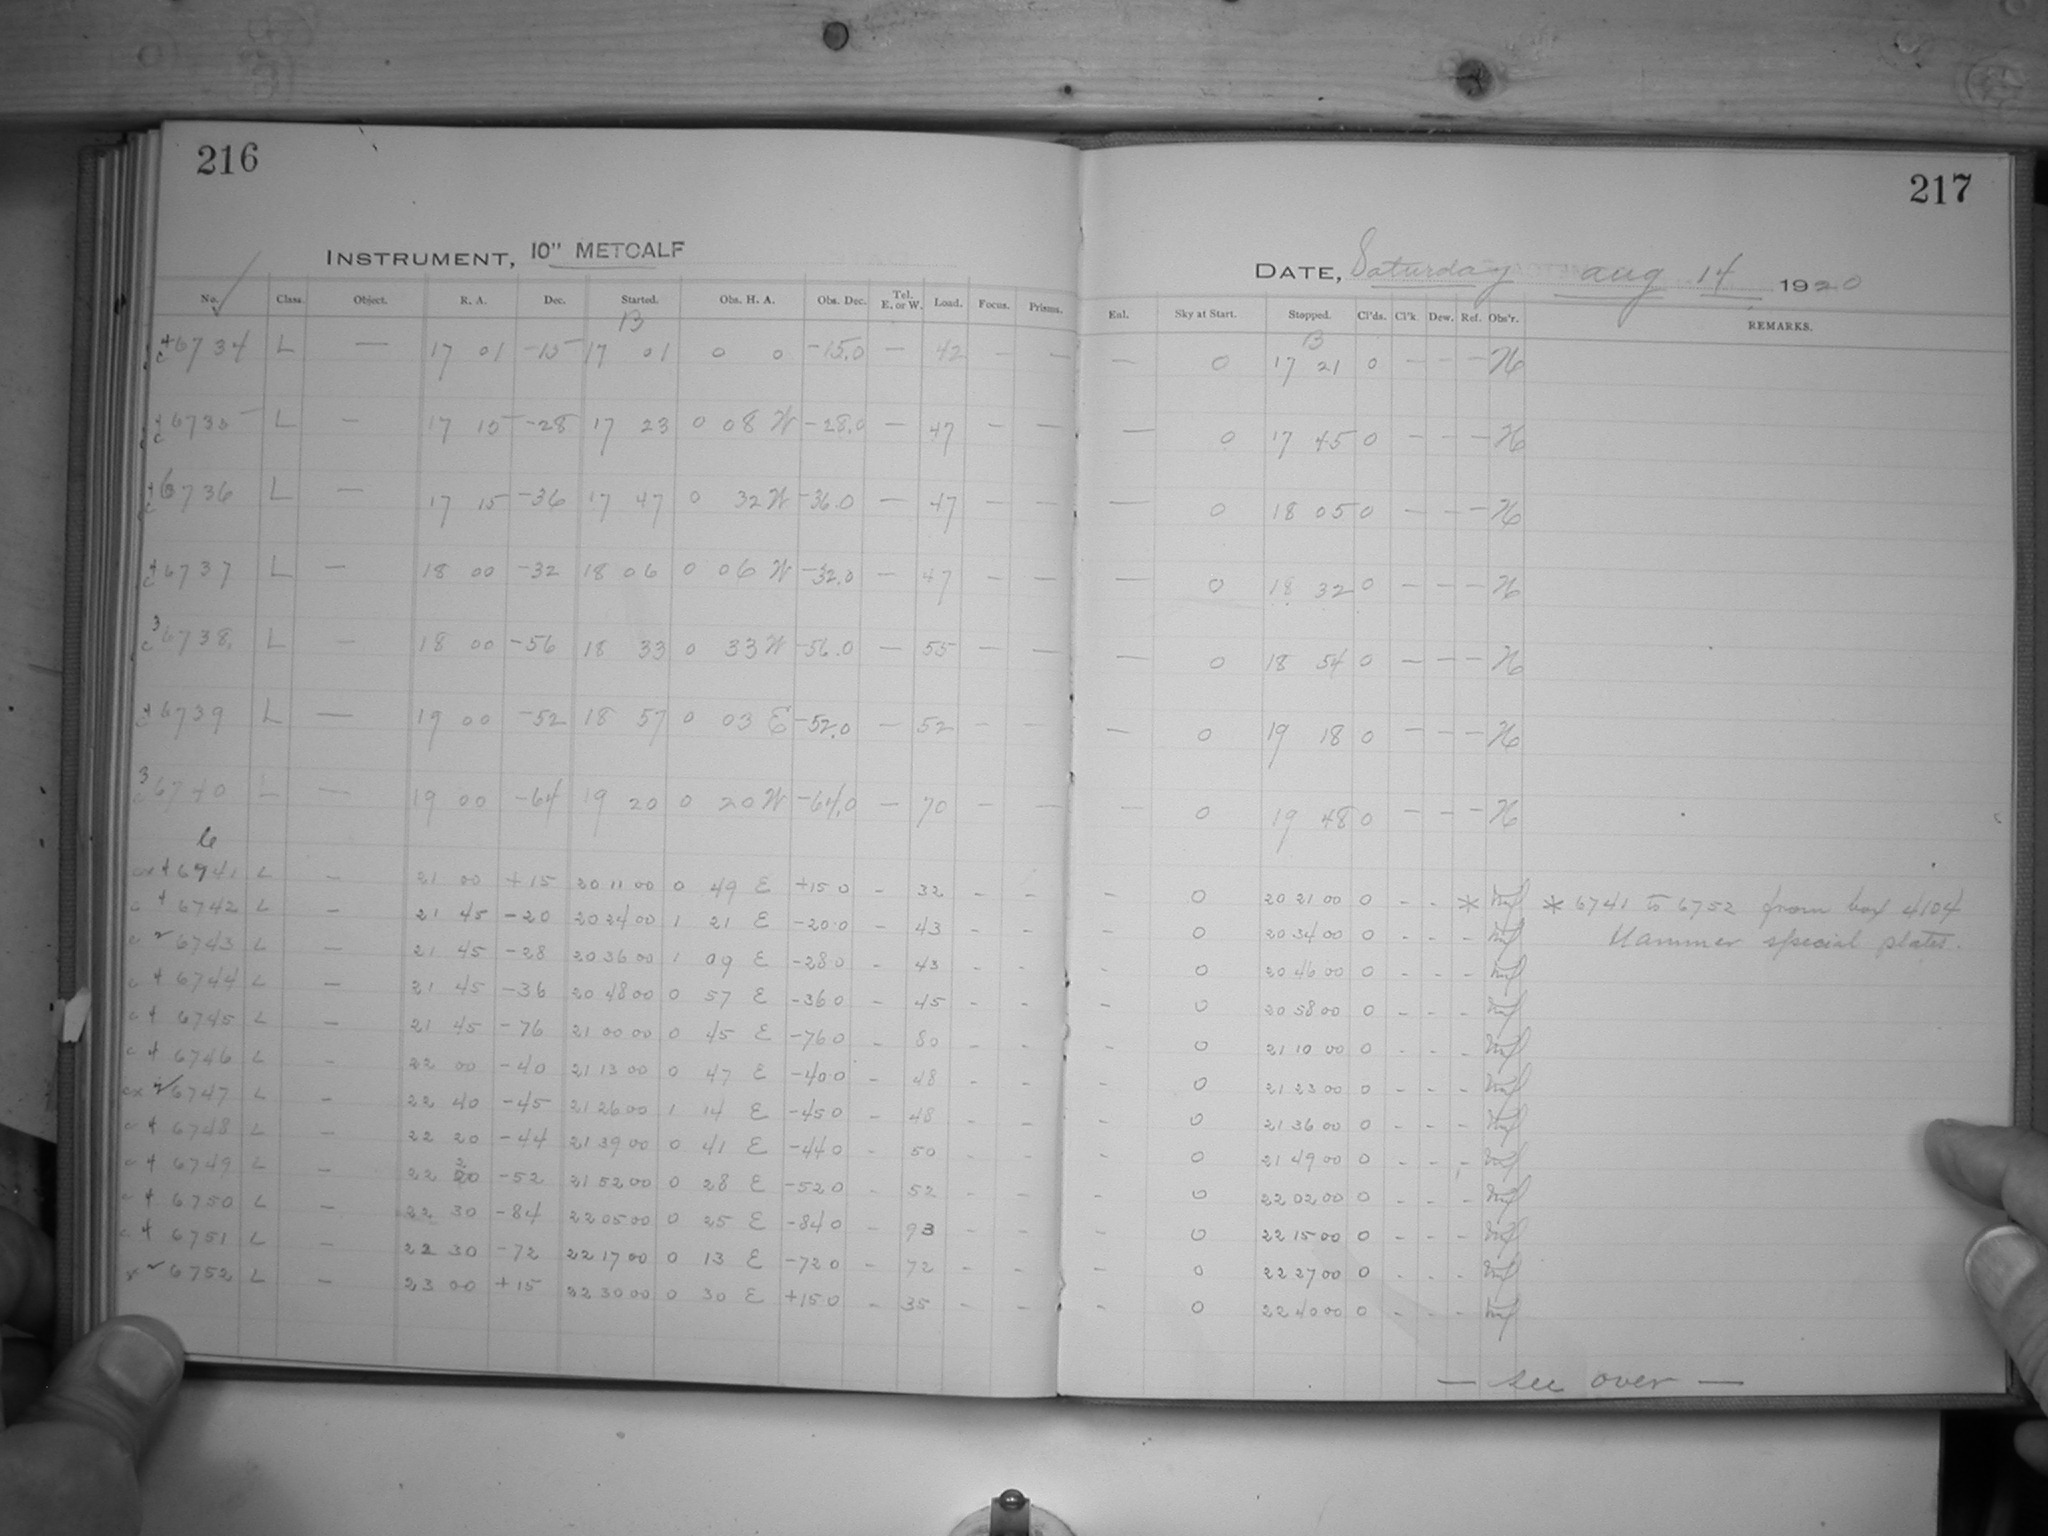 216
217
INSTRUMENT, 10" METCALF
DATE, Saturday Aug 14 1920
No. Class. Object. R. A. Dec. Started. Obs. H. A. Obs. Dec. Tel. E. or W. Load. Focus. Prisms. Enl. Sky at Start. Stopped. Cl'ds. Cl'k. Dew. Ref. Obs'r. REMARKS.
B B
c + 6734 L — 17 01 -15 17 01 0 0 -15.0 — 42 — — — 0 17 21 0 — — — H
c + 6735 L — 17 15 -28 17 23 0 08 W -28.0 — 47 — — — 0 17 45 0 — — — H
c + 6736 L — 17 15 -36 17 47 0 32 W -36.0 — 47 — — — 0 18 05 0 — — — H
c + 6737 L — 18 00 -32 18 06 0 06 W -32.0 — 47 — — — 0 18 32 0 — — — H
c 3 6738 L — 18 00 -56 18 33 0 33 W -56.0 — 55 — — — 0 18 54 0 — — — H
c + 6739 L — 19 00 -52 18 57 0 03 E -52.0 — 52 — — — 0 19 18 0 — — — H
c 3 6740 L — 19 00 -64 19 20 0 20 W -64.0 — 70 — — — 0 19 48 0 — — — H
cx + 6741 L - 21 00 +15 20 11 00 0 49 E +15 0 - 32 - - - 0 20 21 00 0 - - * * 6741 to 6752 from box 4104
c + 6742 L - 21 45 -20 20 24 00 1 21 E -20 0 - 43 - - - 0 20 34 00 0 - - - Hammer special plates.
c 6743 L - 21 45 -28 20 36 00 1 09 E -28 0 - 43 - - - 0 20 46 00 0 - - -
c + 6744 L - 21 45 -36 20 48 00 0 57 E -36 0 - 45 - - - 0 20 58 00 0 - - -
c + 6745 L - 21 45 -76 21 00 00 0 45 E -76 0 - 80 - - - 0 21 10 00 0 - - -
c + 6746 L - 22 00 -40 21 13 00 0 47 E -40 0 - 48 - - - 0 21 23 00 0 - - -
cx 6747 L - 22 40 -45 21 26 00 1 14 E -45 0 - 48 - - - 0 21 36 00 0 - - -
c + 6748 L - 22 20 -44 21 39 00 0 41 E -44 0 - 50 - - - 0 21 49 00 0 - - -
c + 6749 L - 22 20 -52 21 52 00 0 28 E -52 0 - 52 - - - 0 22 02 00 0 - - -
c + 6750 L - 22 30 -84 22 05 00 0 25 E -84 0 - 93 - - - 0 22 15 00 0 - - -
c + 6751 L - 22 30 -72 22 17 00 0 13 E -72 0 - 72 - - - 0 22 27 00 0 - - -
x 6752 L - 23 00 +15 22 30 00 0 30 E +15 0 - 35 - - - 0 22 40 00 0 - - -
— see over —